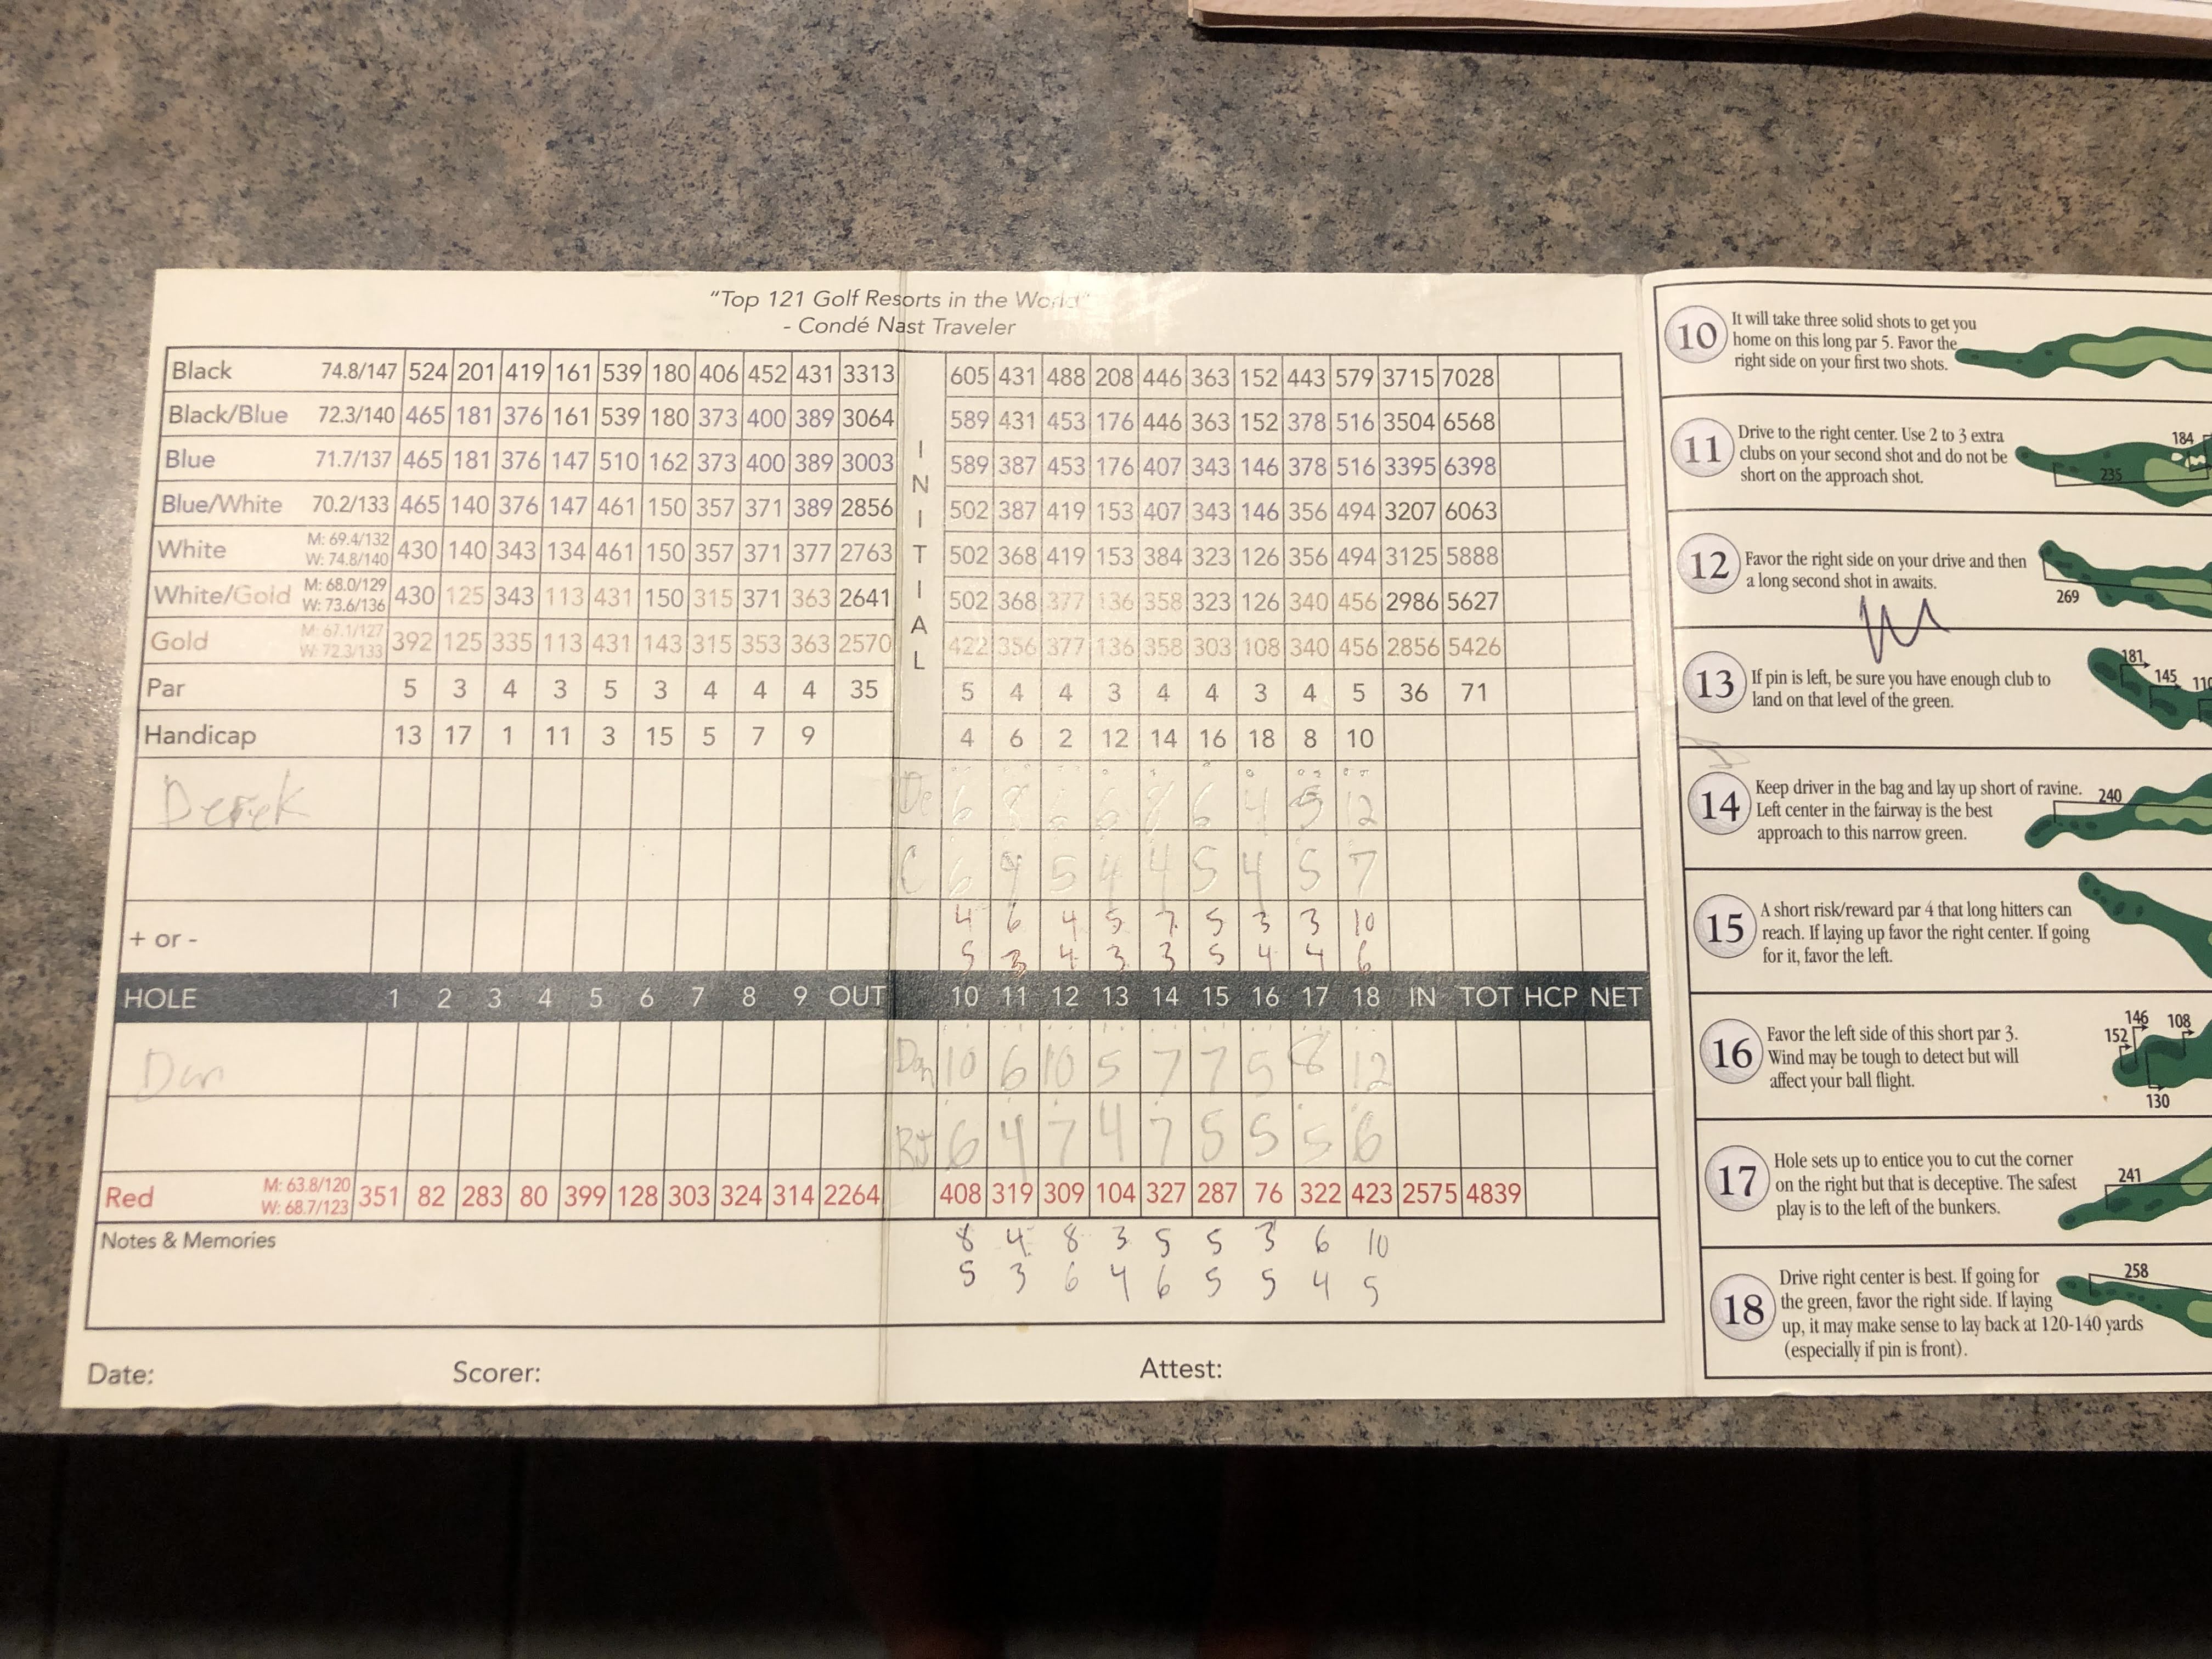 "Top 121 Golf Resorts in the World"
- Condé Nast Traveler
Black 74.8/147 524 201 419 161 539 180 406 452 431 3313 605 431 488 208 446 363 152 443 579 3715 7028
Black/Blue 72.3/140 465 181 376 161 539 180 373 400 389 3064 589 431 453 176 446 363 152 378 516 3504 6568
Blue 71.7/137 465 181 376 147 510 162 373 400 389 3003 589 387 453 176 407 343 146 378 516 3395 6398
Blue/White 70.2/133 465 140 376 147 461 150 357 371 389 2856 502 387 419 153 407 343 146 356 494 3207 6063
White M: 69.4/132 W: 74.8/140 430 140 343 134 461 150 357 371 377 2763 502 368 419 153 384 323 126 356 494 3125 5888
White/Gold M: 68.0/129 W: 73.6/136 430 125 343 113 431 150 315 371 363 2641 502 368 377 136 358 323 126 340 456 2986 5627
Gold M: 67.1/127 W: 72.3/133 392 125 335 113 431 143 315 353 363 2570 422 356 377 136 358 303 108 340 456 2856 5426
INITIAL
Par 5 3 4 3 5 3 4 4 4 35 5 4 4 3 4 4 3 4 5 36 71
Handicap 13 17 1 11 3 15 5 7 9 4 6 2 12 14 16 18 8 10
Derek De 6 8 6 6 8 6 4 5 12
C 6 4 5 4 4 5 4 5 7
4 6 4 5 7 5 3 3 10
+ or -
5 3 4 3 3 5 4 4 6
HOLE 1 2 3 4 5 6 7 8 9 OUT 10 11 12 13 14 15 16 17 18 IN TOT HCP NET
Dan Dan 10 6 10 5 7 7 5 8 12
RJ 6 4 7 4 7 5 5 5 6
Red M: 63.8/120 W: 68.7/123 351 82 283 80 399 128 303 324 314 2264 408 319 309 104 327 287 76 322 423 2575 4839
Notes & Memories
8 4 8 3 5 5 3 6 10
5 3 6 4 6 5 5 4 5
Date: Scorer: Attest:
10 It will take three solid shots to get you
home on this long par 5. Favor the
right side on your first two shots.
11 Drive to the right center. Use 2 to 3 extra
clubs on your second shot and do not be
short on the approach shot.
184
235
12 Favor the right side on your drive and then
a long second shot in awaits.
269
13 If pin is left, be sure you have enough club to
land on that level of the green.
181
145
110
14 Keep driver in the bag and lay up short of ravine.
Left center in the fairway is the best
approach to this narrow green.
240
15 A short risk/reward par 4 that long hitters can
reach. If laying up favor the right center. If going
for it, favor the left.
16 Favor the left side of this short par 3.
Wind may be tough to detect but will
affect your ball flight.
146
152
108
130
17 Hole sets up to entice you to cut the corner
on the right but that is deceptive. The safest
play is to the left of the bunkers.
241
18 Drive right center is best. If going for
the green, favor the right side. If laying
up, it may make sense to lay back at 120-140 yards
(especially if pin is front).
258